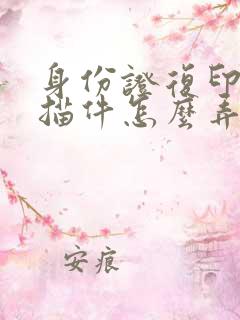 身份證復印
描件怎麼弄
安痕